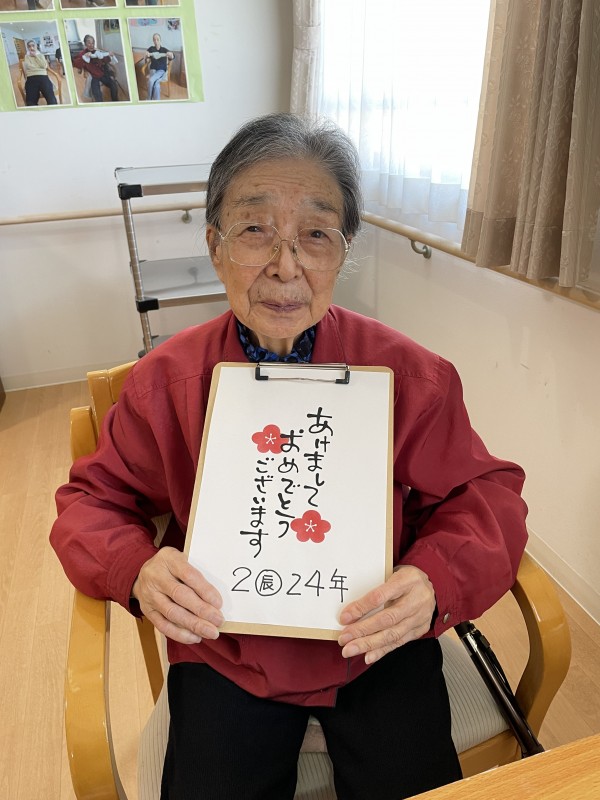 あけまして
おめでとう
ございます
2㊎24年